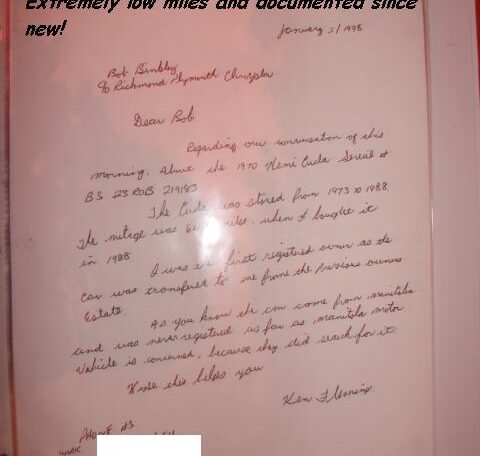 Extremely low miles and documented since
new!
January 5/1998
Bob Binkley
c/o Richmond Plymouth Chrysler
Dear Bob.
Regarding our conversation of this
morning. About the 1970 Hemi Cuda Serial #
BS 23 R0B 219183
The Cuda was stored from 1973 to 1988
The milage was miles. when I bought it
in 1988
I was the first registered owner as the
car was transfered to me from the previous owners
Estate.
As you know the car come from manitoba
and was never registered as far as manitoba motor
Vehicle is concerned, because they did search for it.
Hope this helps you
Ken Fleming
PHONE #S
WORK